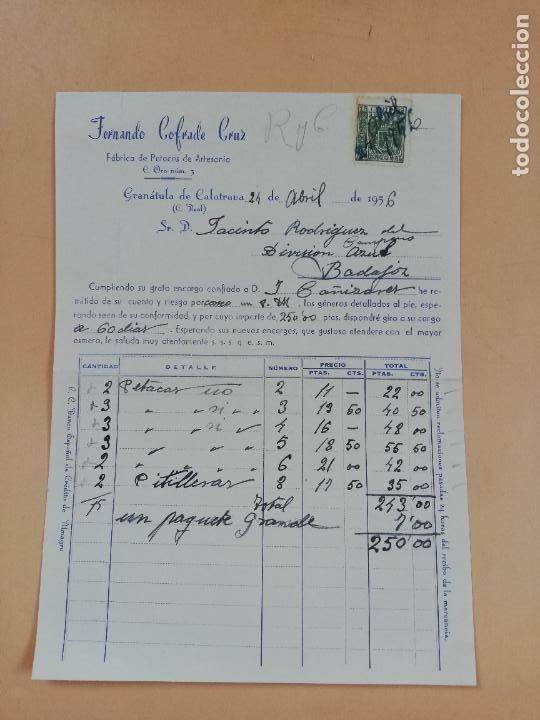 Ry6
Fernando Cofrade Cruz
Fábrica de Petacas de Artesanía
C. Oro núm. 3
Granátula de Calatrava 24 de Abril de 1956
(C. Real)
Sr. D. Jacinto Rodriguez del
Division Azul
Badajoz
Cumpliendo su grato encargo confiado a D. J Cañizares he re-
mitido de su cuenta y riesgo por los géneros detallados al pie, espe-
rando sean de su conformidad, y por cuyo importe de 250'00 ptas. dispondré giro a su cargo
a 60 dias. Esperando sus nuevos encargos, que gustoso atenderé con el mayor
esmero, le saluda muy atentamente s. s. s. q. e. s. m.
CANTIDAD DETALLE NÚMERO PRECIO TOTAL
PTAS. CTS. PTAS. CTS.
2 Petacas no 2 11 — 22 00
3 " " si " 3 13 50 40 50
3 " " si " 4 16 — 48 00
3 " " " " 5 18 50 55 50
2 " " " " 6 21 00 42 00
2 Pitilleras 8 17 50 35 00
15 Total 243'00
un paquete Grande 7'00
250'00
C. C. Banco Español de Crédito de Almagro
No se admiten reclamaciones pasadas 24 horas del recibo de la mercancía.
todocoleccion.net